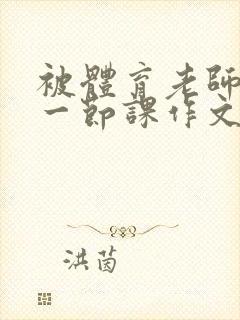 被體育老師
一節課作文
洪茵